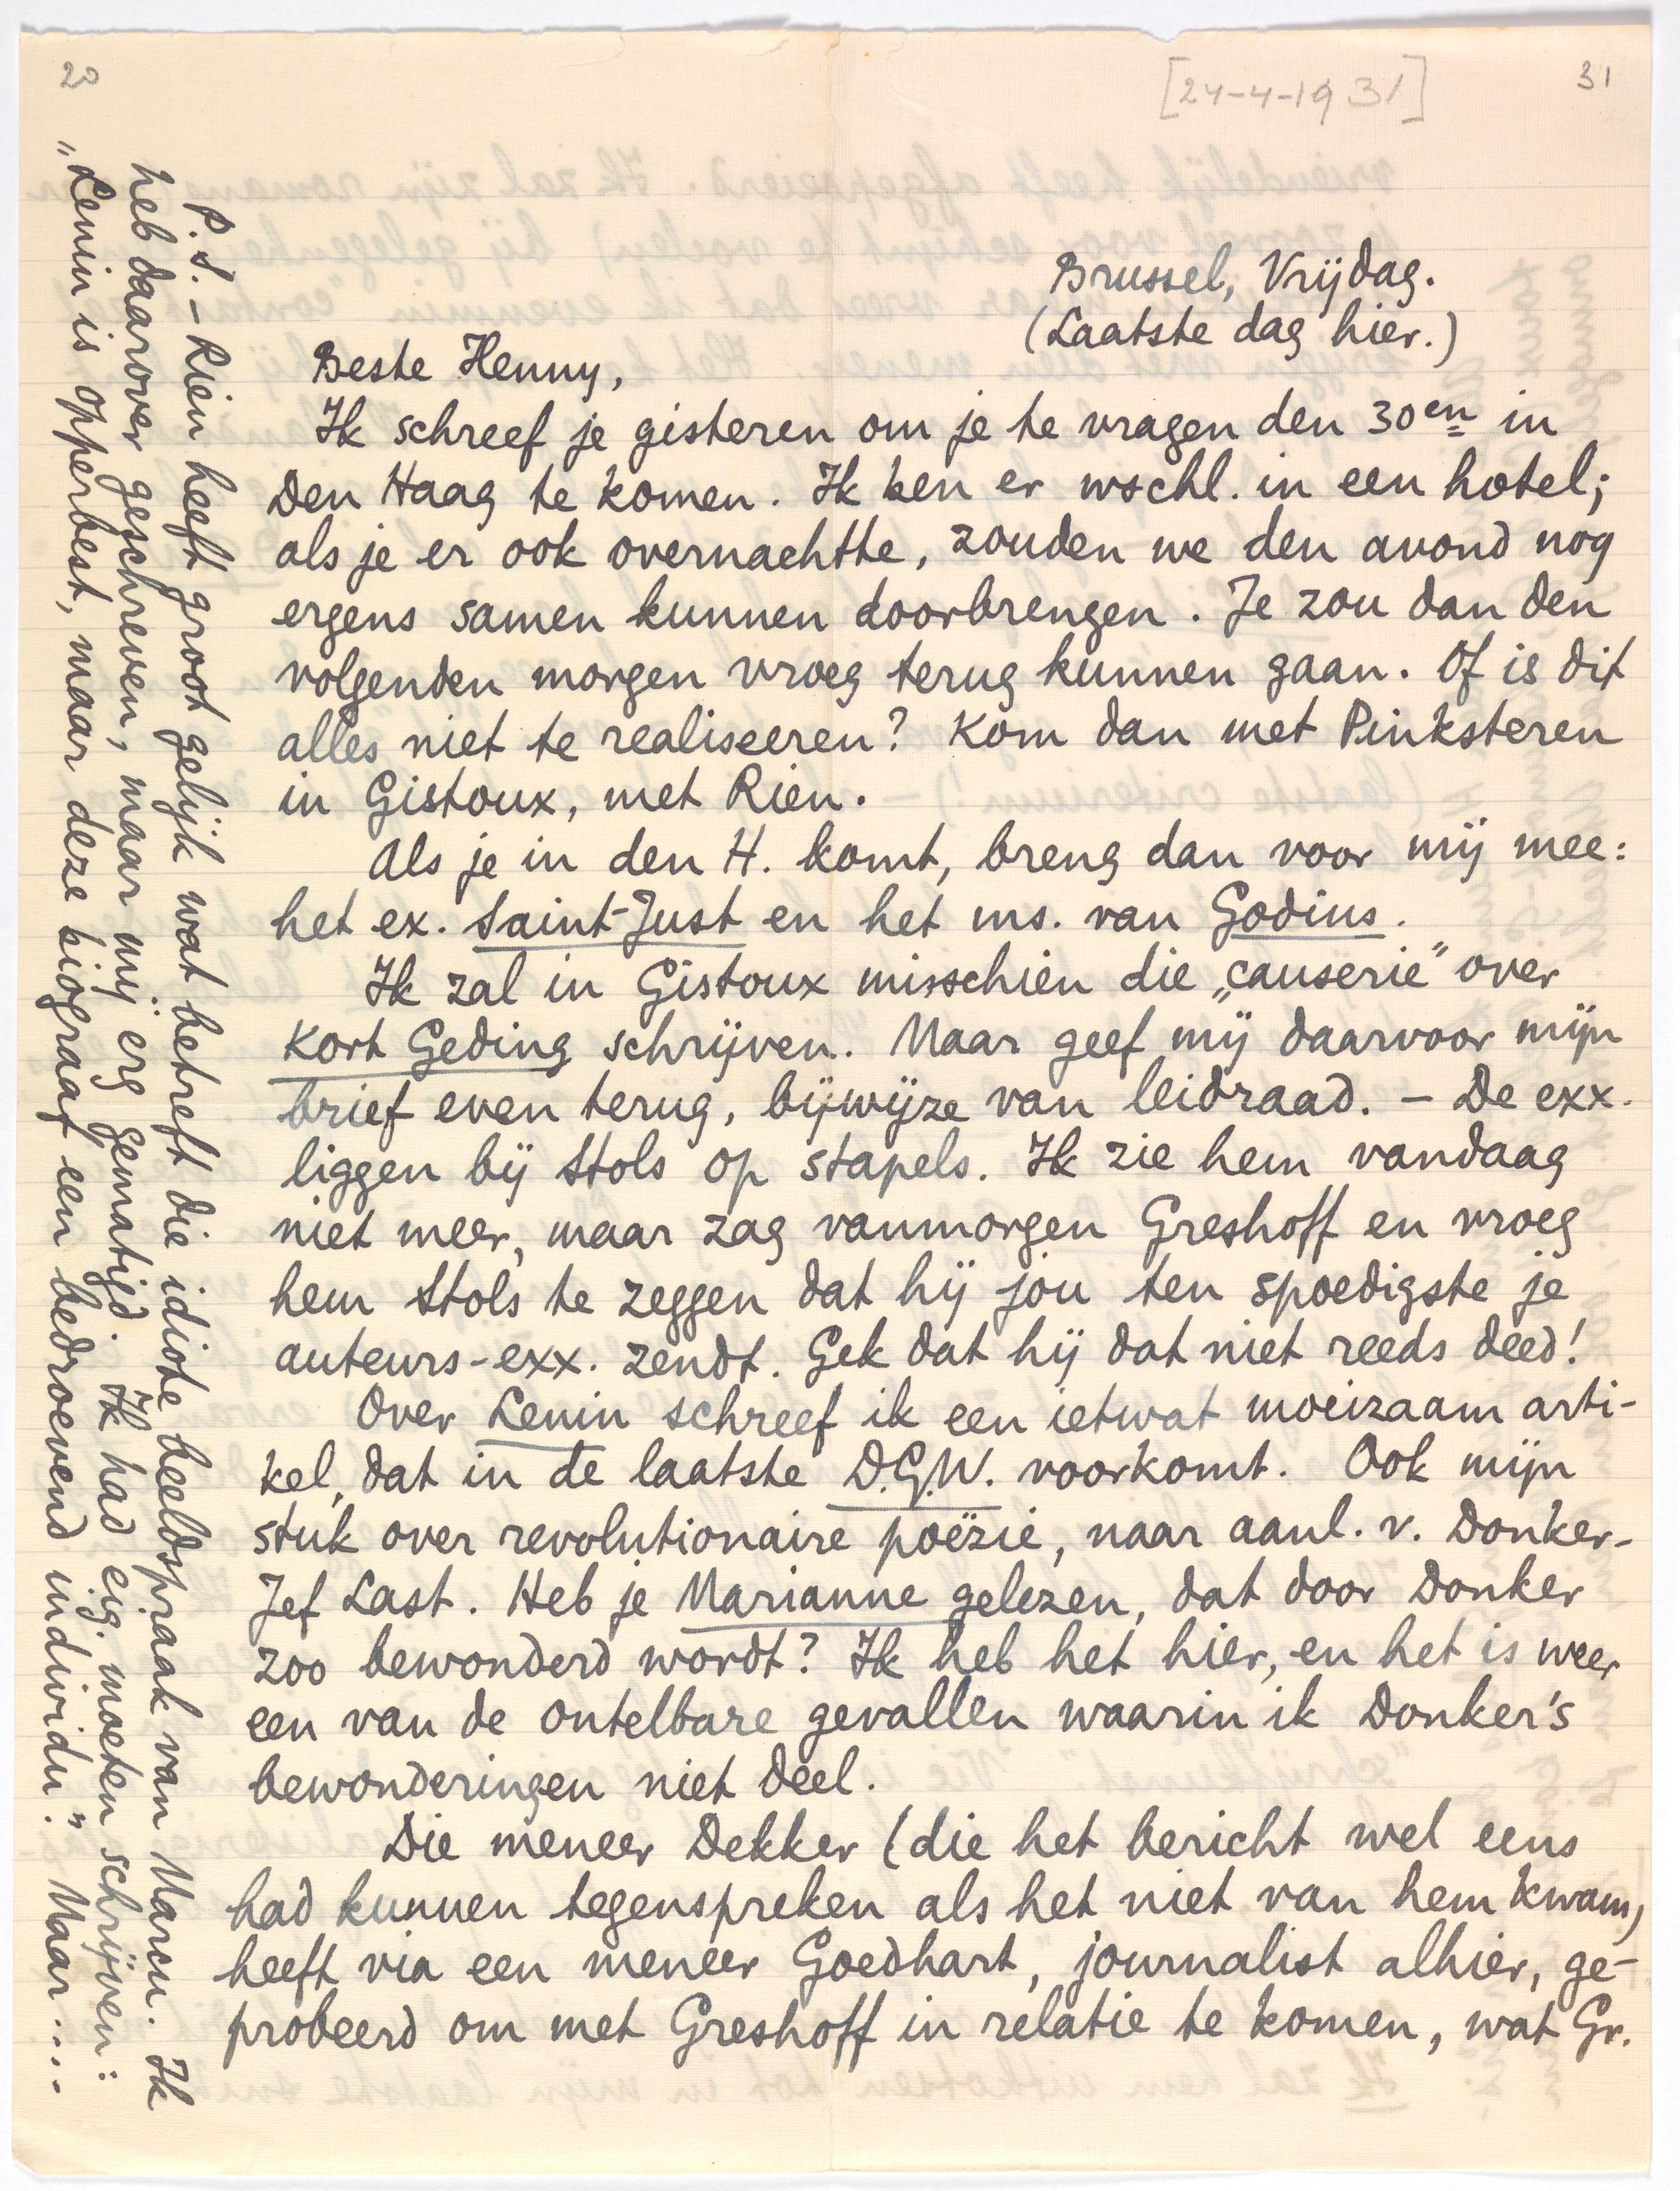 20
[24-4-1931]
31
Brussel, Vrijdag.
(Laatste dag hier.)
Beste Henny,
Ik schreef je gisteren om je te vragen den 30en in
Den Haag te komen. Ik ben er wschl. in een hotel;
als je er ook overnachtte, zouden we den avond nog
ergens samen kunnen doorbrengen. Je zou dan den
volgenden morgen vroeg terug kunnen gaan. Of is dit
alles niet te realiseeren? Kom dan met Pinksteren
in Gistoux, met Rien.
Als je in den H. komt, breng dan voor mij mee:
het ex. Saint-Just en het ms. van Godius.
Ik zal in Gistoux misschien die „causerie” over
Kort Geding schrijven. Maar geef mij daarvoor mijn
brief even terug, bijwijze van leidraad. – De exx.
liggen bij Stols op stapels. Ik zie hem vandaag
niet meer, maar zag vanmorgen Greshoff en vroeg
hem Stols te zeggen dat hij jou ten spoedigste je
auteurs-exx. zendt. Gek dat hij dat niet reeds deed!
Over Lenin schreef ik een ietwat moeizaam arti-
kel, dat in de laatste D.G.W. voorkomt. Ook mijn
stuk over revolutionaire poëzie, naar aanl. v. Donker-
Jef Last. Heb je Marianne gelezen, dat door Donker
zoo bewonderd wordt? Ik heb het hier, en het is weer
een van de ontelbare gevallen waarin ik Donker's
bewonderingen niet deel.
Die meneer Dekker (die het bericht wel eens
had kunnen tegenspreken als het niet van hem kwam)
heeft via een meneer Goedhart, journalist alhier, ge-
probeerd om met Greshoff in relatie te komen, wat Gr.
P.S. – Rien heeft groot gelijk wat betreft die idiote beeldspraak van Marcu. Ik
heb daarover geschreven, maar mij erg gematigd. Ik had eig. moeten schrijven:
„Lenin is opperbest, maar deze biograaf een bedroevend individu.” Maar....